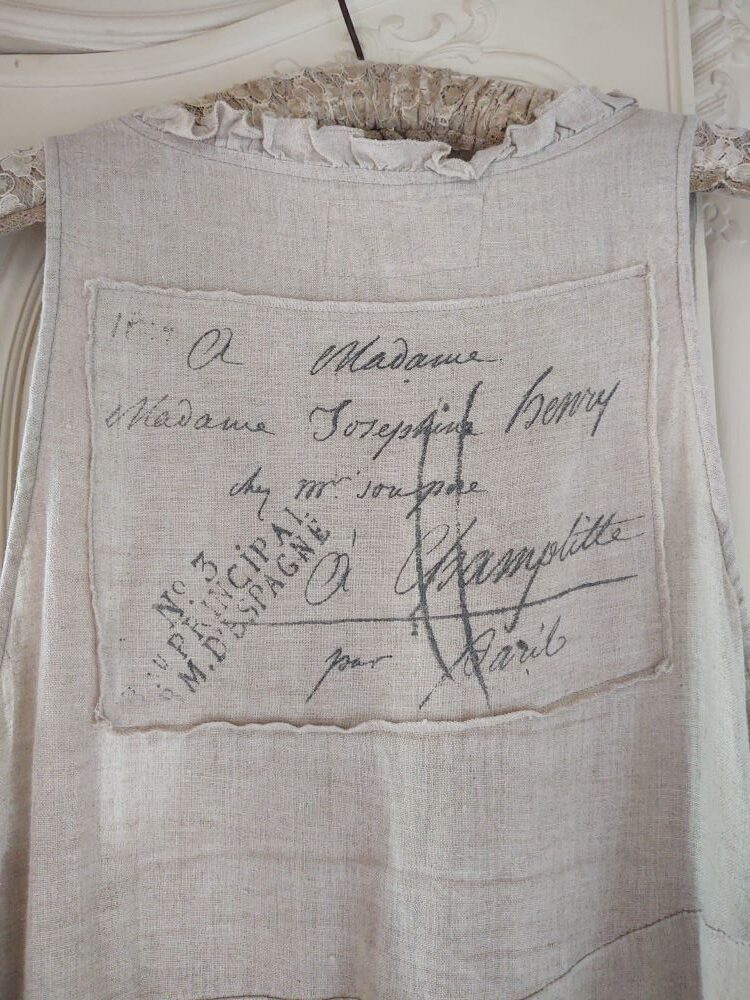 A Madame
Madame Josephine henry
chez mr. son pere
A Champlitte
par Paris
No. 3
PRINCIPAL
M. D'ESPAGNE